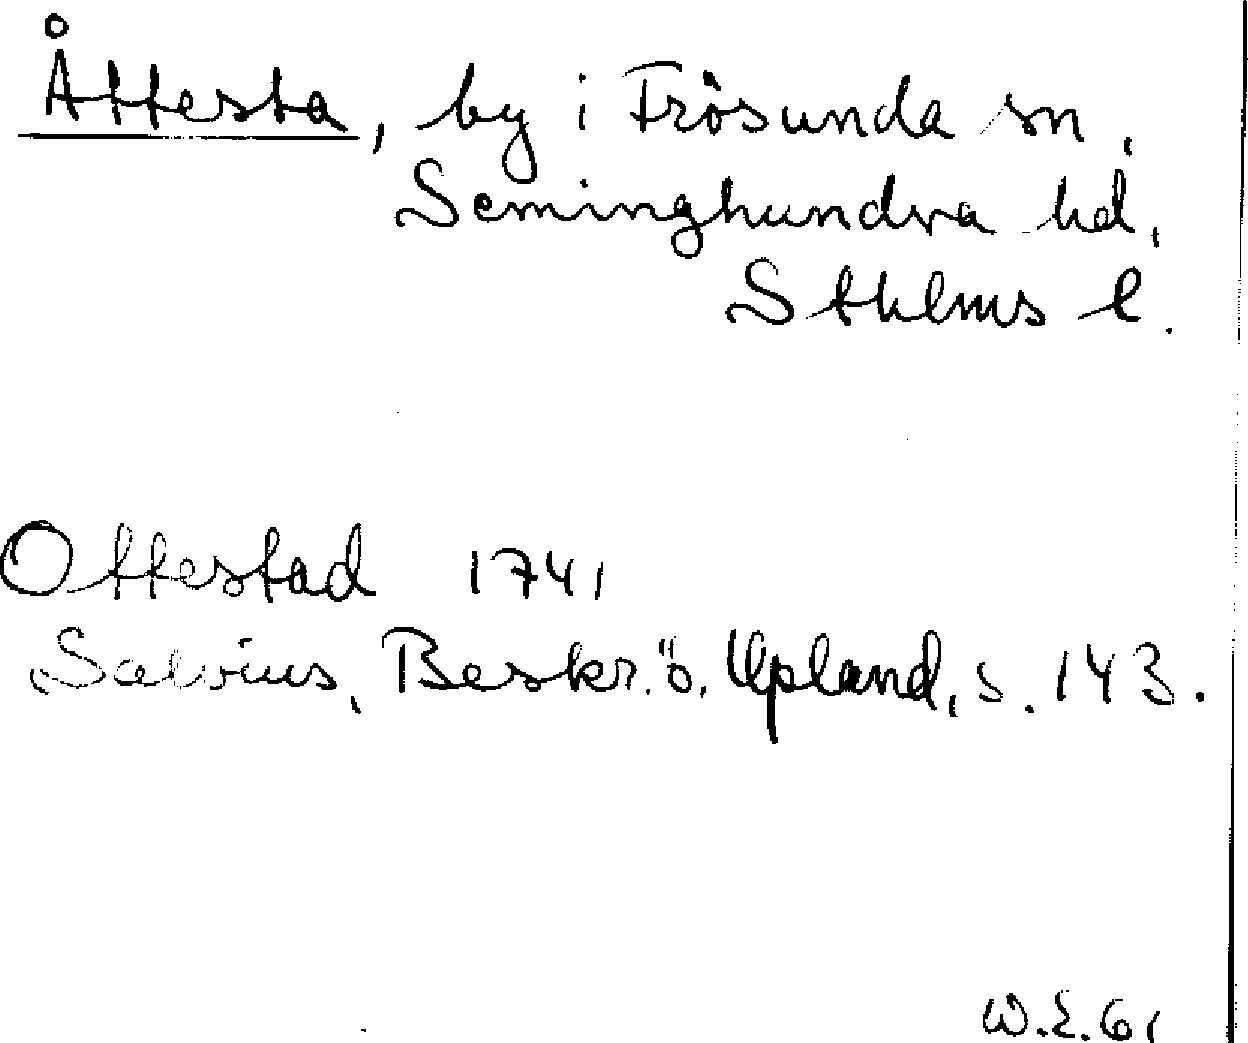 Åttesta, by i Frösunda sn,
Seminghundra hd,
Sthlms l.
Ottestad 1741
Salvius, Beskr. ö. Upland, s. 143.
W.E. 61